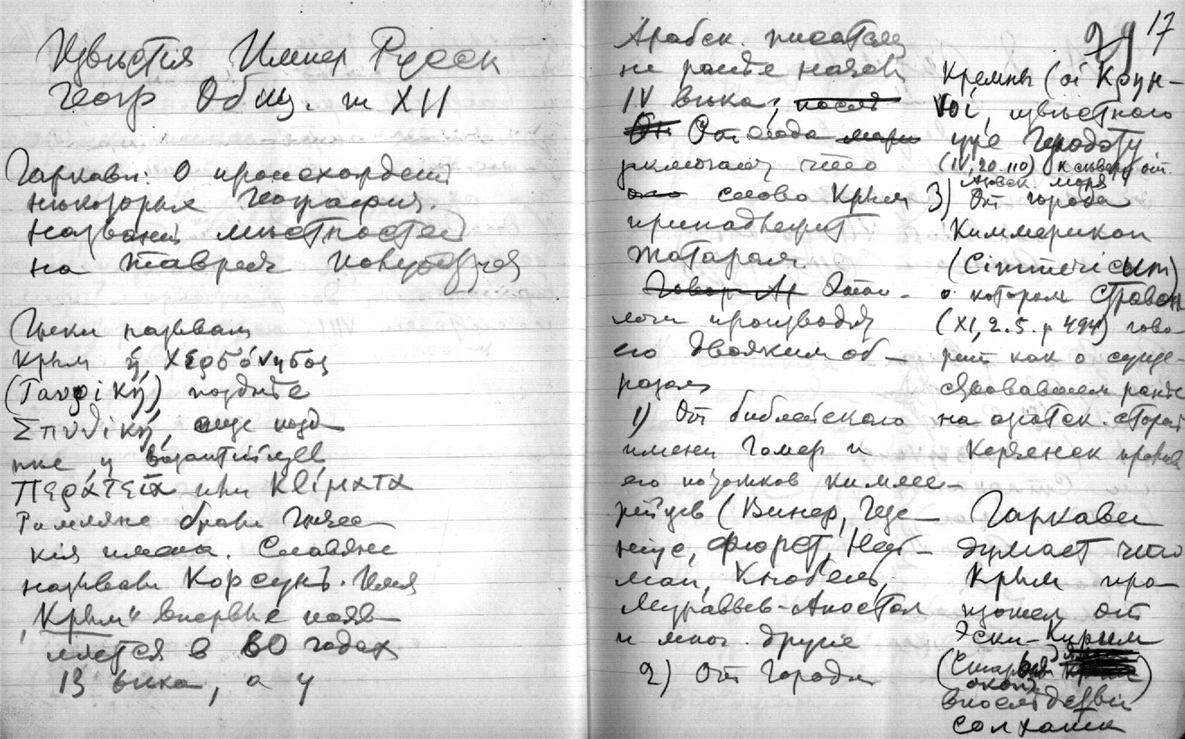 Извѣстія Импер Русск
Геогр Общ. т XII
Гаркави: О происхожденіи
нѣкоторых Географич.
названій мѣстностей
на Таврич полуостр
Греки называли
Крым ἡ Χερσόνησος
(Ταυρική) позднѣе
Σκυθική, еще позд
нѣе у византійцев
Περάτεια или Κλίματα
Римляне брали Греческія
кія имена. Славяне
называли Корсунь. Имя
„Крым" впервые появ
ляется в 60 годах
13 вѣка, а у
17
Арабск. писател
не ранѣе начала
IV вѣка;
От сюда
заключают что
слово Крым
принадлежит
Татарам.
Этимо-
логи производят
его двояким об-
разом
1) От библейского
имени Гомер и
его потомков кимме-
рійцев (Винер, Гезе-
ніус, Фюрст, Ней-
ман, Кнобель,
Муравьев-Апостол
и мног. другіе
2) От города
Кремны (οἱ Κρημ-
νοί, извѣстного
уже Геродоту
(IV, 20. 110) к сѣверу от
Азовск. моря
3) От города
Киммерикон
(Cimmericum)
о котором Страбон
(XI, 2. 5. p 494) гово-
рит как о суще-
ствовавшем ранѣе
на азіатск. сторонѣ
Керченск пролив
Гаркави
думает что
Крым про-
изошел от
Эски-Кирим
(Старый
впослѣдствіи
Солхатск